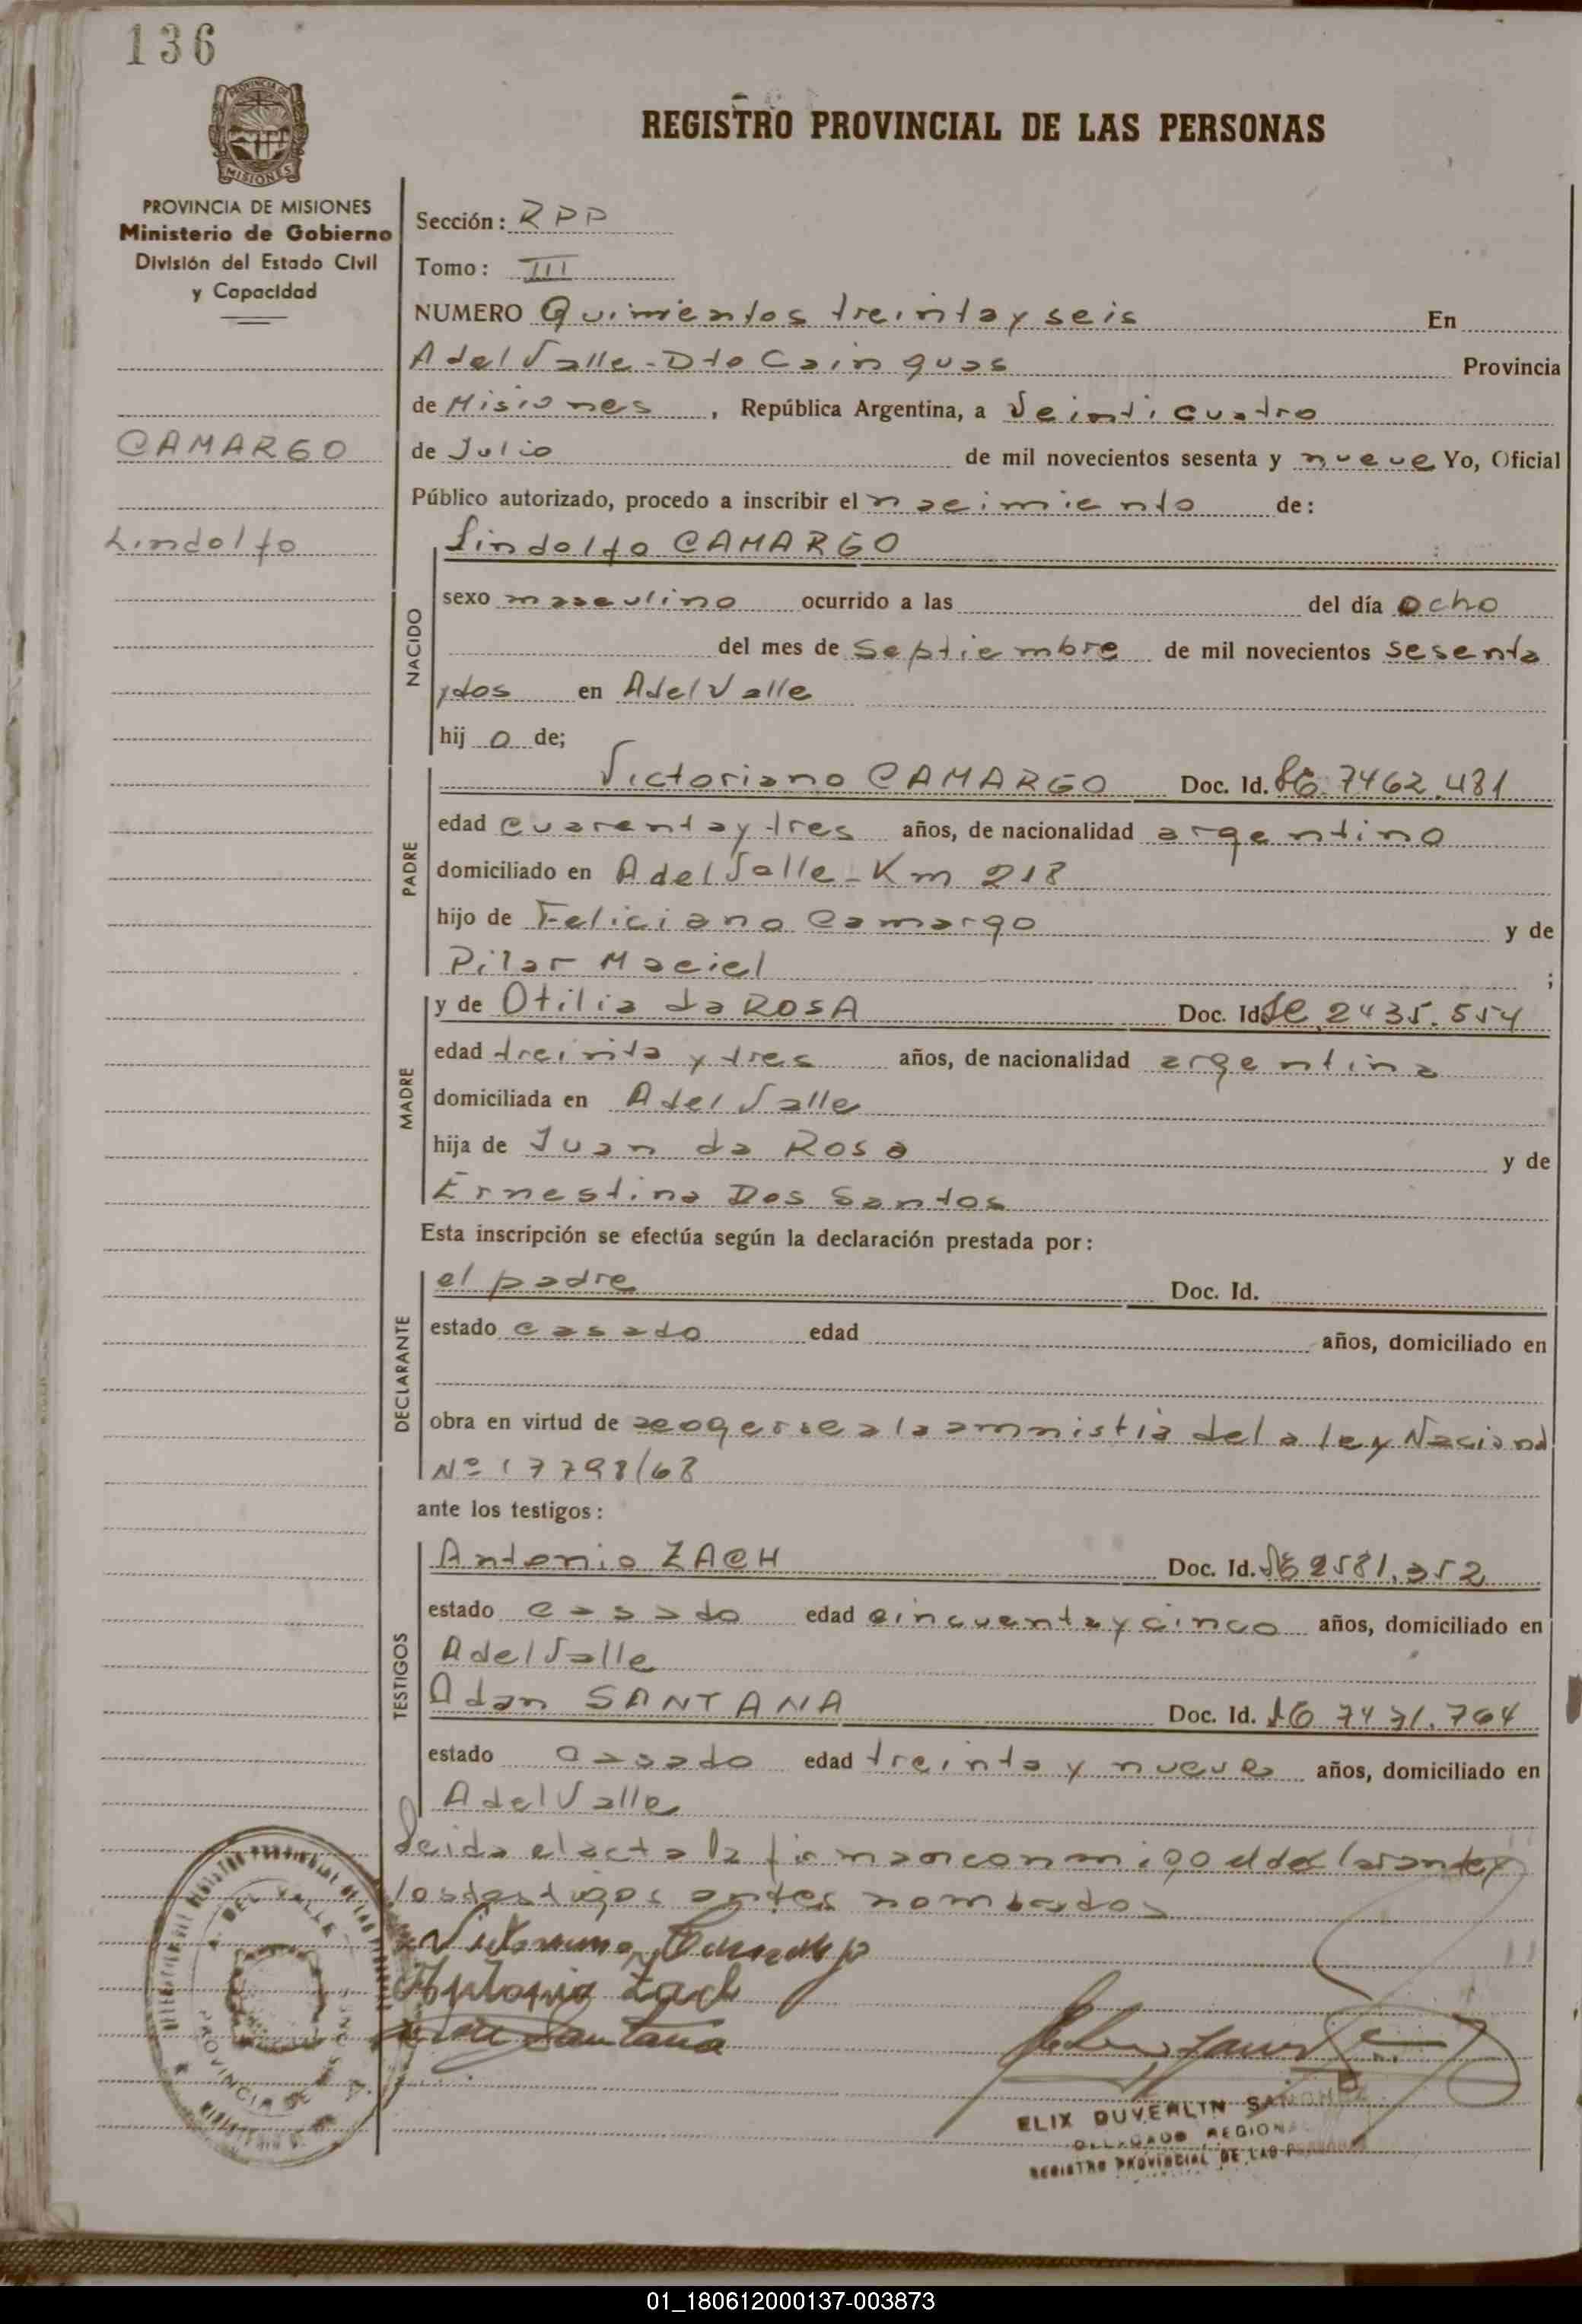 136
PROVINCIA DE MISIONES
REGISTRO PROVINCIAL DE LAS PERSONAS
PROVINCIA DE MISIONES
Ministerio de Gobierno
División del Estado Civil
y Capacidad
CAMARGO
Lindolfo
Sección: RPP
Tomo: III
NUMERO Quinientos treinta y seis En
A del Valle - Dto Cainguas Provincia
de Misiones, República Argentina, a Veinticuatro
de Julio de mil novecientos sesenta y nueve Yo, Oficial
Público autorizado, procedo a inscribir el nacimiento de:
NACIDO
Lindolfo CAMARGO
sexo masculino ocurrido a las del día ocho
del mes de septiembre de mil novecientos sesenta
y dos en A del Valle
hij o de;
PADRE
Victoriano CAMARGO Doc. Id. 7462.481
edad cuarenta y tres años, de nacionalidad argentino
domiciliado en A del Valle - Km 218
hijo de Feliciano Camargo y de
Pilar Maciel ;
MADRE
y de Otilia da ROSA Doc. Id. 2435.554
edad treinta y tres años, de nacionalidad argentina
domiciliada en A del Valle
hija de Juan da Rosa y de
Ernestina Dos Santos
Esta inscripción se efectúa según la declaración prestada por:
DECLARANTE
el padre Doc. Id.
estado casado edad años, domiciliado en
obra en virtud de acogerse a la amnistia de la ley Nacional
Nº 17798/68
ante los testigos:
TESTIGOS
Antonio ZACH Doc. Id. 2581.352
estado casado edad cincuenta y cinco años, domiciliado en
A del Valle
Adan SANTANA Doc. Id. 7431.764
estado casado edad treinta y nueve años, domiciliado en
A del Valle
Leida el acta la firman conmigo el declarante y
los testigos antes nombrados
Victoriano Camargo
Antonio Zach
Santana
A. DEL VALLE
PROVINCIA DE MISIONES
ELIX DUVERLIN SANCHEZ
DELEGADO REGIONAL
REGISTRO PROVINCIAL DE LAS PERSONAS
01_180612000137-003873